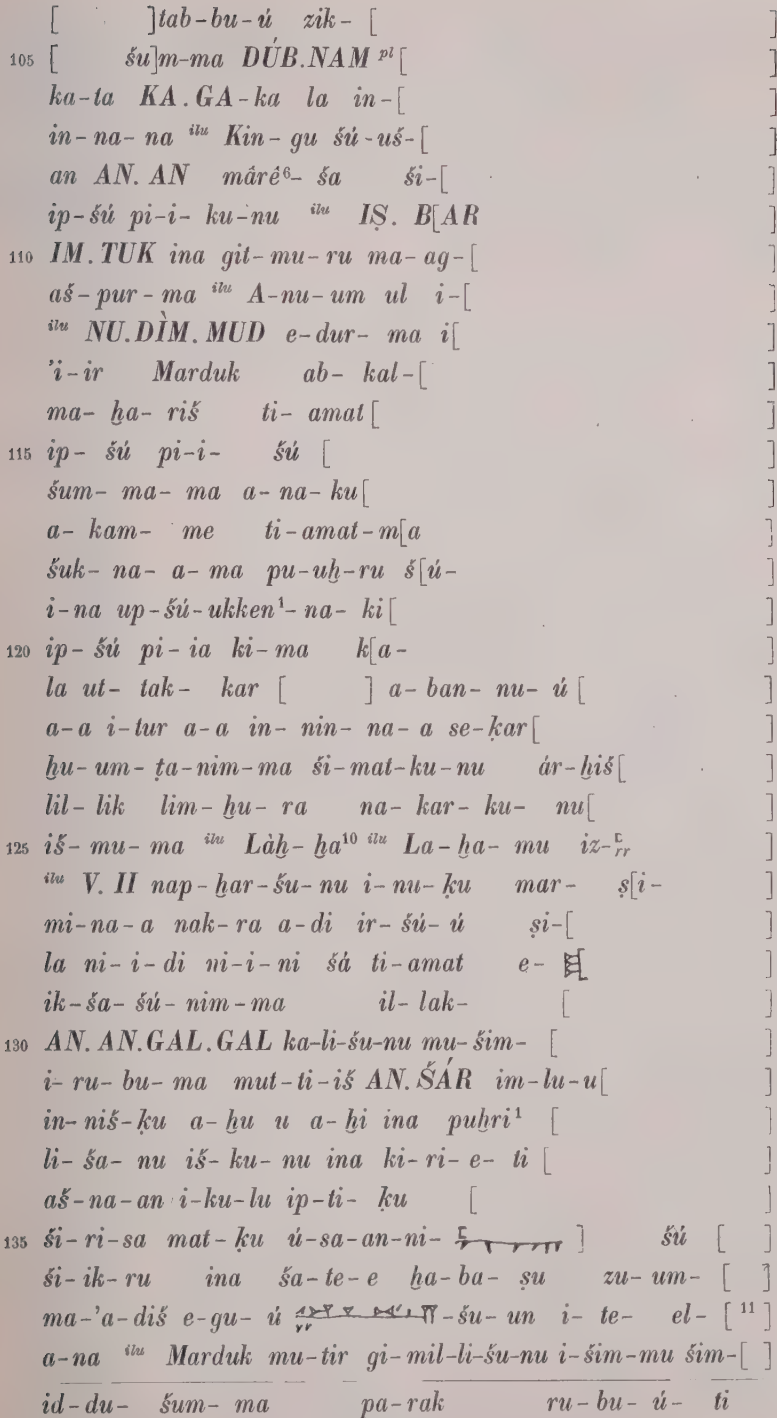 [ ]tab-bu-ú zik- [ ]
105 [ šu]m-ma DÚB.NAM pl [ ]
ka-ta KA.GA-ka la in-[ ]
in-na-na ilu Kin-gu šú-uš-[ ]
an AN.AN mârê⁶-ša ši-[ ]
ip-šú pi-i-ku-nu ilu IṢ.B[AR
110 IM.TUK ina git-mu-ru ma-ag-[ ]
aš-pur-ma ilu A-nu-um ul i-[ ]
ilu NU.DÌM.MUD e-dur-ma i[ ]
'i-ir Marduk ab-kal-[ ]
ma-ḫa-riš ti-amat [ ]
115 ip-šú pi-i-šú [ ]
šum-ma-ma a-na-ku[ ]
a-kam-me ti-amat-m[a ]
šuk-na-a-ma pu-uḫ-ru š[ú- ]
i-na up-šú-ukken¹-na-ki [ ]
120 ip-šú pi-ia ki-ma k[a- ]
la ut-tak-kar [ ] a-ban-nu-ú [ ]
a-a i-tur a-a in-nin-na-a se-ḳar[ ]
ḫu-um-ṭa-nim-ma ši-mat-ku-nu ár-ḫiš[ ]
lil-lik lim-ḫu-ra na-kar-ku-nu[ ]
125 iš-mu-ma ilu Làḫ-ḫa¹⁰ ilu La-ḫa-mu iz- ]
ilu V.II nap-ḫar-šu-nu i-nu-ḳu mar-ṣ[i- ]
mi-na-a nak-ra a-di ir-šú-ú ṣi-[ ]
la ni-i-di ni-i-ni šá ti-amat e- ]
ik-ša-šú-nim-ma il-lak- [ ]
130 AN.AN.GAL.GAL ka-li-šu-nu mu-šim- [ ]
i-ru-bu-ma mut-ti-iš AN.ŠÁR im-lu-u[ ]
in-niš-ḳu a-ḫu u a-ḫi ina puḫri¹ [ ]
li-ša-nu iš-ku-nu ina ki-ri-e-ti [ ]
aš-na-an i-ku-lu ip-ti-ḳu [ ]
135 ši-ri-sa mat-ḳu ú-sa-an-ni- ] šú [ ]
ši-ik-ru ina ša-te-e ḫa-ba-ṣu zu-um- [ ]
ma-'a-diš e-gu-ú -šu-un i-te-el-[ ¹¹]
a-na ilu Marduk mu-tir gi-mil-li-šu-nu i-šim-mu šim-[ ]
id-du-šum-ma pa-rak ru-bu-ú-ti